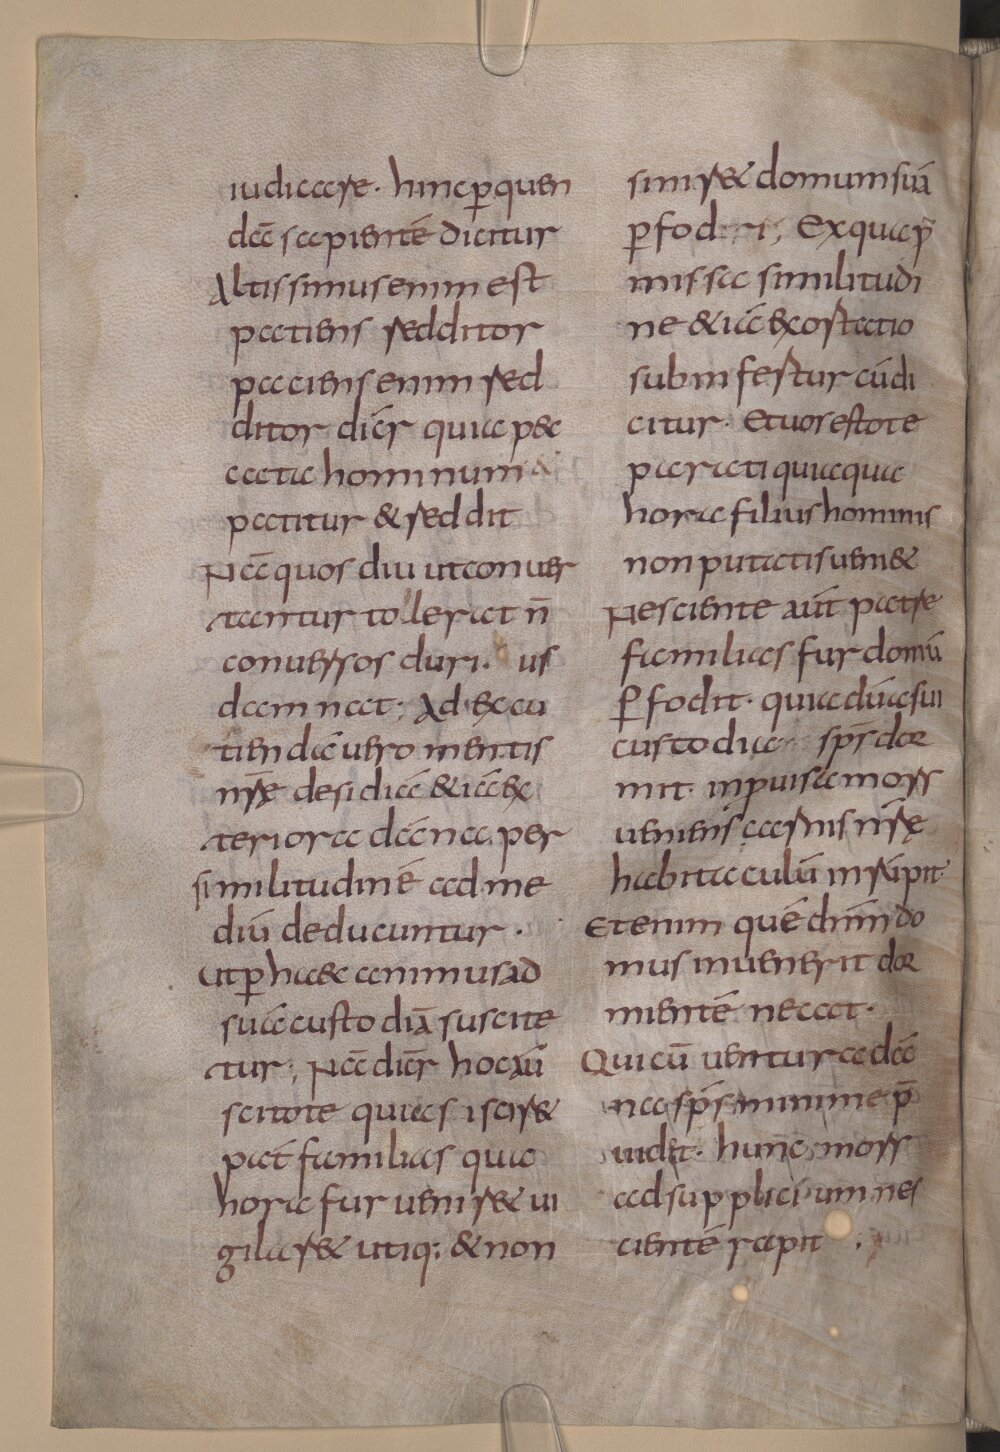 iudicare. hinc p quen
dā sapientē dicitur
Altissimus enim est
patiens redditor
paciens enim red
ditor dicr̄ quia pec
cata hominum &
patitur & reddit
Nā quos diu ut conuer
tantur tolerat n̄
conuersos duri us
damnat; Ad excu
tienda uero mentis
nr̄ę desidiā & iā ex
teriora dāna per
similitudinē ad me
diū deducuntur.
Ut p haec animus ad
suā custodiā suscite
tur; Nā dicr̄ hoc aū
scitote quia si sciret
pat familias qua
hora fur ueniret ui
gilaret utiq; & non
sineret domum suā
pfodiri; Ex qua p̄
missa similitudi
ne & iā exortatio
subinfertur cū di
citur. Et uos estote
parati quia qua
hora filius hominis
non putatis ueni&
Nesciente aūt patre
familias fur domū
pfodit. quia dū a sui
custodia sp̄s dor
mit. inpuisa mors
ueniens carnis nr̄ę
habitaculū inrūpit
Et enim quē dn̄m do
mus inuenerit dor
mientē necat.
Qui cū uentura dā
na sp̄s minime p̄
uidet. hunc mors
ad supplicium nes
cientē rapit.